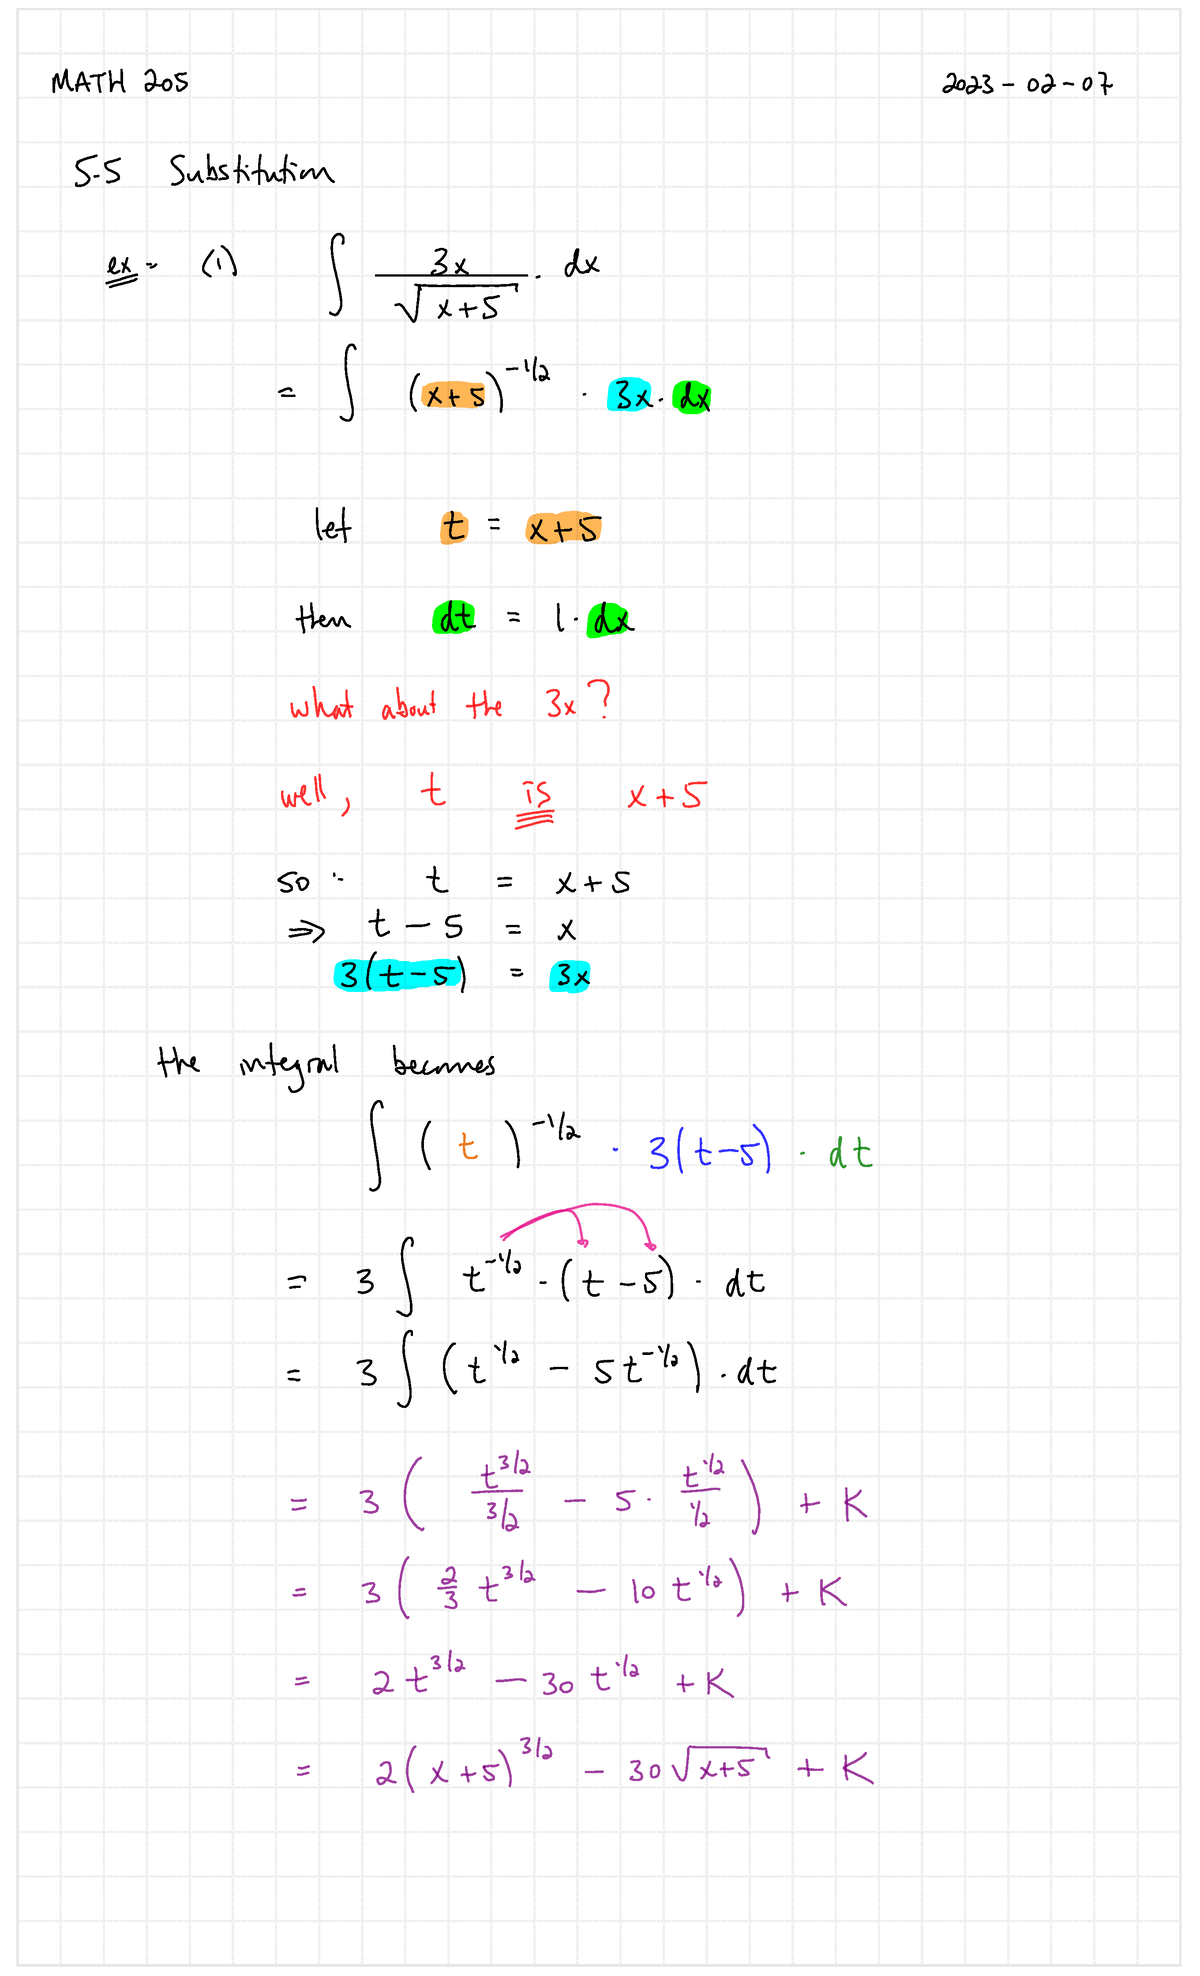 MATH 205 2023-02-07
5.5 Substitution
ex: (1) ∫ 3x/√(x+5) · dx
= ∫ (x+5)^(-1/2) · 3x · dx
let t = x+5
then dt = 1 · dx
what about the 3x?
well, t is x+5
so: t = x+5
⇒ t - 5 = x
3(t-5) = 3x
the integral becomes
∫ (t)^(-1/2) · 3(t-5) · dt
= 3 ∫ t^(-1/2) · (t-5) · dt
= 3 ∫ (t^(1/2) - 5t^(-1/2)) · dt
= 3 ( t^(3/2)/(3/2) - 5 · t^(1/2)/(1/2) ) + K
= 3 ( 2/3 t^(3/2) - 10 t^(1/2) ) + K
= 2 t^(3/2) - 30 t^(1/2) + K
= 2(x+5)^(3/2) - 30 √(x+5) + K